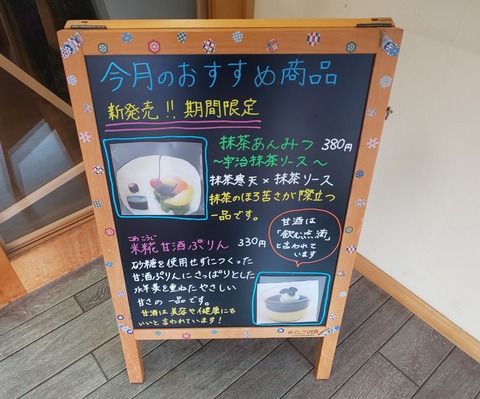 今月のおすすめ商品
新発売!! 期間限定
抹茶あんみつ 380円
～宇治抹茶ソース～
抹茶寒天×抹茶ソース
抹茶のほろ苦さが際立つ
一品です。
甘酒は
「飲む点滴」
と言われて
います
こめこうじ
米糀甘酒ぷりん 330円
砂糖を使用せずにつくった
甘酒ぷりんにさっぱりとした
水羊羹を重ねたやさしい
甘さの一品です。
甘酒は美容や健康にも
いいと言われています!
CLOVER